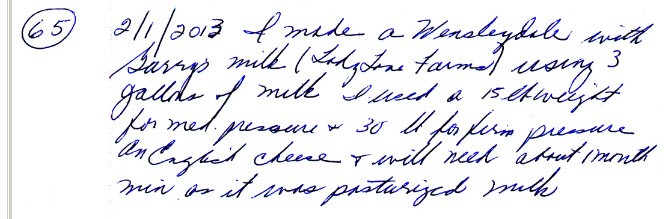 65 2/1/2013 I made a Wensleydale with
Garrys milk (Lady Lane Farms) using 3
gallons of milk I used a 15 lb weight
for med. pressure + 30 lb for firm pressure
An English cheese + will need about 1 month
min as it was pasturized milk